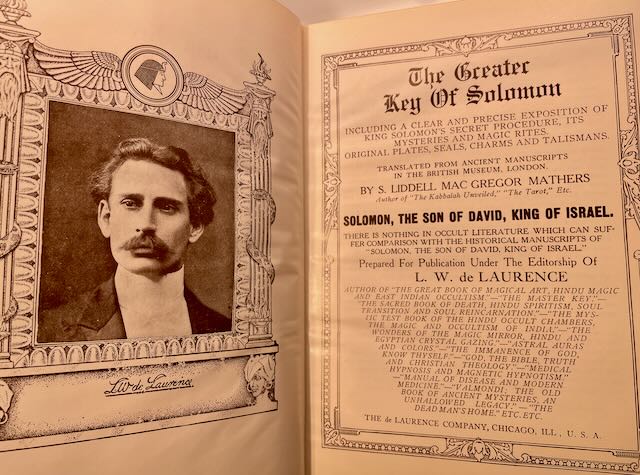 L.W. de Laurence.
The Greater
Key Of Solomon
INCLUDING A CLEAR AND PRECISE EXPOSITION OF
KING SOLOMON'S SECRET PROCEDURE, ITS
MYSTERIES AND MAGIC RITES.
ORIGINAL PLATES, SEALS, CHARMS AND TALISMANS.
TRANSLATED FROM ANCIENT MANUSCRIPTS
IN THE BRITISH MUSEUM, LONDON.
BY S. LIDDELL MAC GREGOR MATHERS
Author of "The Kabbalah Unveiled," "The Tarot," Etc.
SOLOMON, THE SON OF DAVID, KING OF ISRAEL.
THERE IS NOTHING IN OCCULT LITERATURE WHICH CAN SUF-
FER COMPARISON WITH THE HISTORICAL MANUSCRIPTS OF
"SOLOMON, THE SON OF DAVID, KING OF ISRAEL"
Prepared For Publication Under The Editorship Of
L. W. de LAURENCE
AUTHOR OF "THE GREAT BOOK OF MAGICAL ART, HINDU MAGIC
AND EAST INDIAN OCCULTISM"—"THE MASTER KEY"—
"THE SACRED BOOK OF DEATH, HINDU SPIRITISM, SOUL
TRANSITION AND SOUL REINCARNATION."—"THE MYS-
TIC TEST BOOK OF THE HINDU OCCULT CHAMBERS,
THE MAGIC AND OCCULTISM OF INDIA,"—"THE
WONDERS OF THE MAGIC MIRROR, HINDU AND
EGYPTIAN CRYSTAL GAZING"—"ASTRAL AURAS
AND COLORS"—"THE IMMANENCE OF GOD,
KNOW THYSELF."—"GOD, THE BIBLE, TRUTH
AND CHRISTIAN THEOLOGY"—"MEDICAL
HYPNOSIS AND MAGNETIC HYPNOTISM."
—"MANUAL OF DISEASE AND MODERN
MEDICINE."—"VALMONDI, THE OLD
BOOK OF ANCIENT MYSTERIES, AN
UNHALLOWED LEGACY."—"THE
DEAD MAN'S HOME." ETC. ETC.
THE de LAURENCE COMPANY, CHICAGO, ILL., U. S. A.